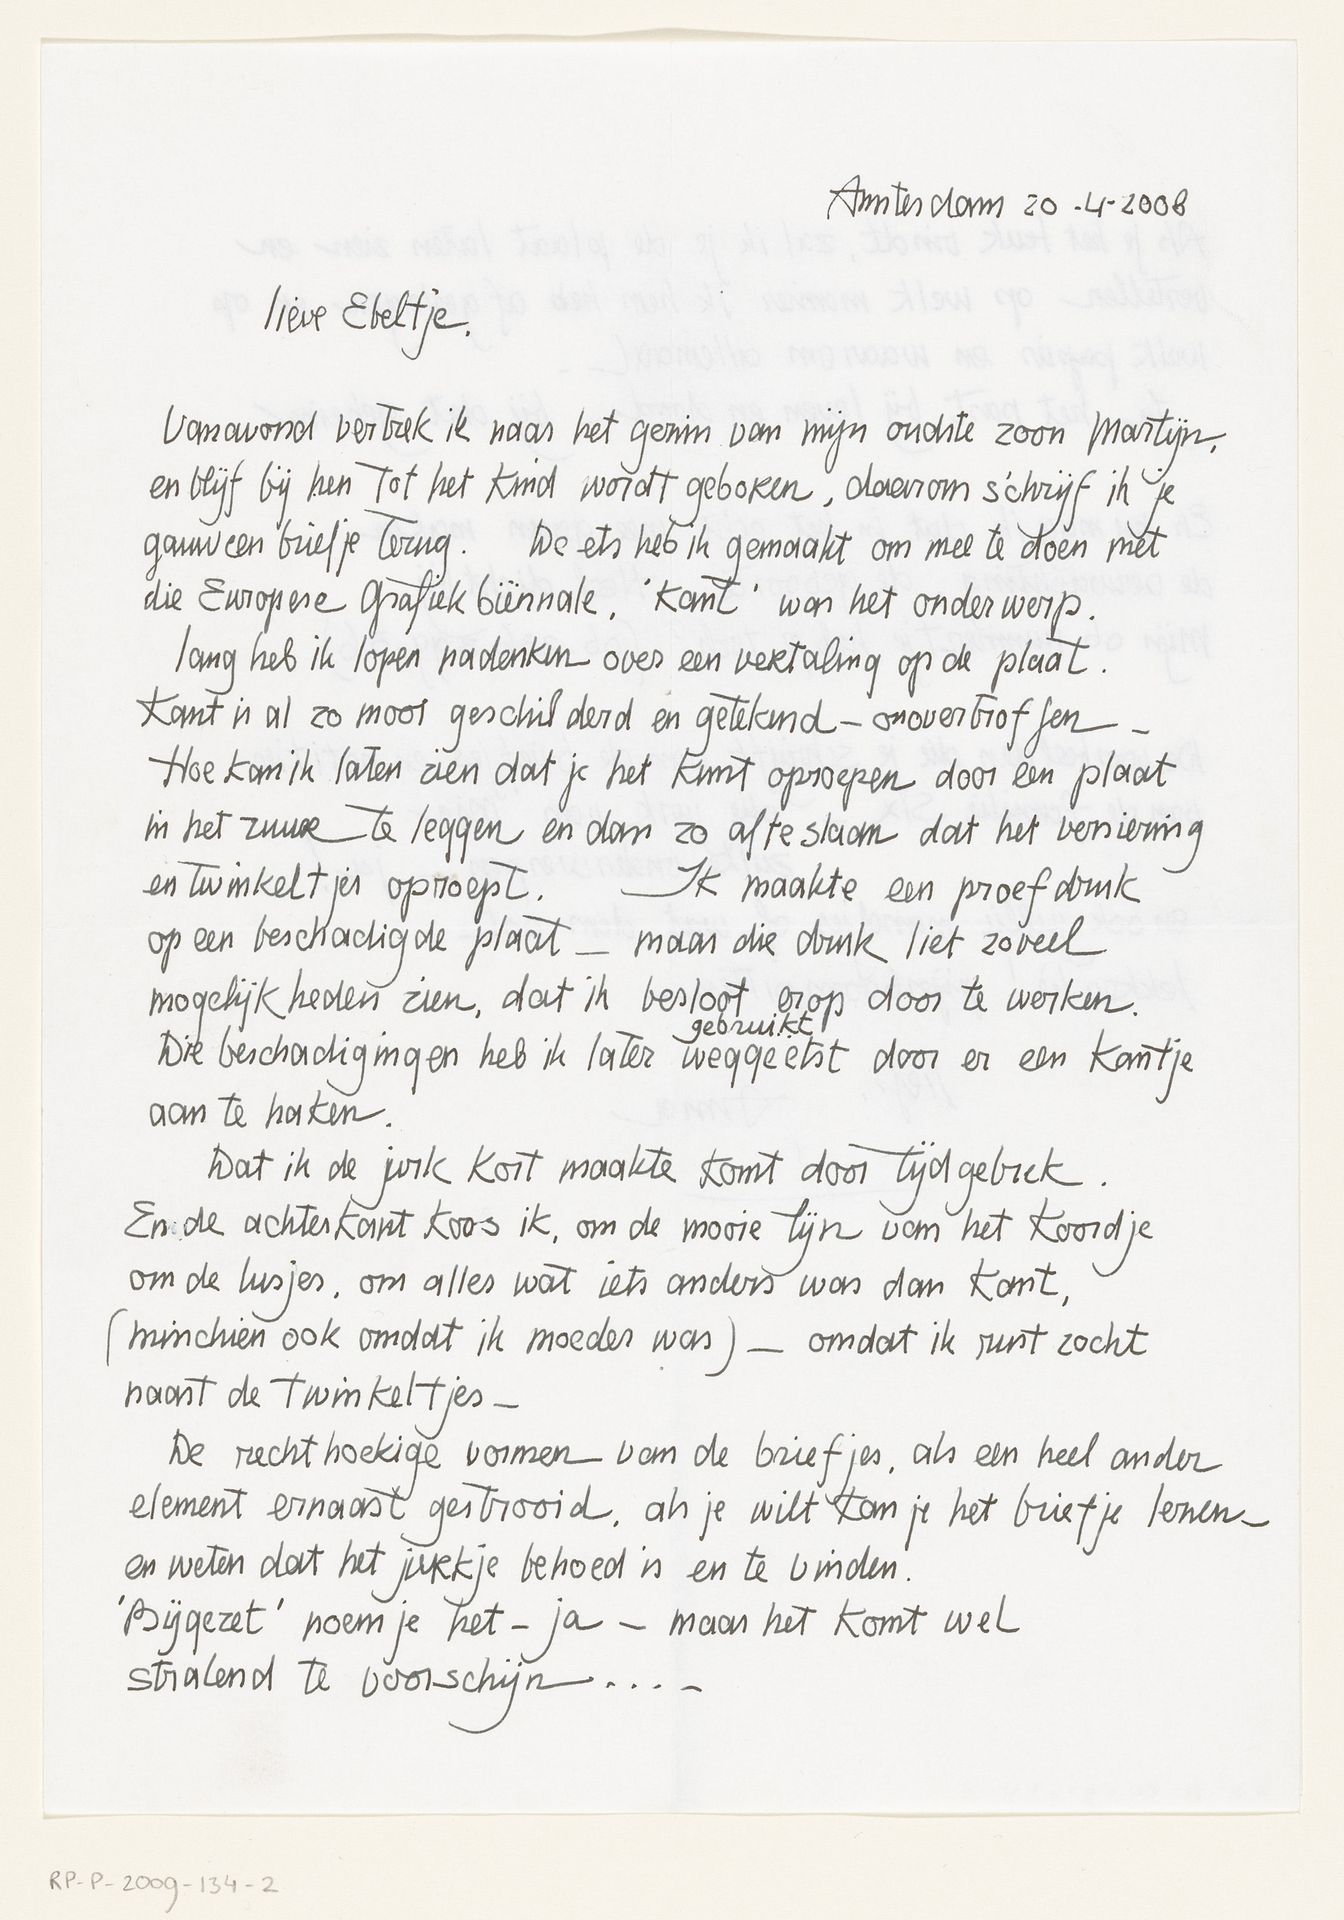 Amsterdam 20-4-2008
lieve Ebeltje.
Vanavond vertrek ik naar het gezin van mijn oudste zoon Martijn,
en blijf bij hen tot het kind wordt geboren, daarom schrijf ik je
gauw een briefje terug. De ets heb ik gemaakt om mee te doen met
die Europese Grafiek biënnale, 'kant' was het onderwerp.
lang heb ik lopen nadenken over een vertaling op de plaat.
Kant is al zo mooi geschilderd en getekend – onovertroffen –
Hoe kan ik laten zien dat je het kunt oproepen door een plaat
in het zuur te leggen en dan zo af te slaan dat het versiering
en twinkeltjes oproept. Ik maakte een proefdruk
op een beschadigde plaat – maar die druk liet zoveel
mogelijkheden zien, dat ik besloot erop door te werken.
gebruikt
Die beschadigingen heb ik later weggeëtst door er een kantje
aan te haken.
Dat ik de jurk kort maakte komt door tijdgebrek.
En de achterkant koos ik, om de mooie lijn van het koordje
om de lusjes, om alles wat iets anders was dan kant,
(misschien ook omdat ik moeder was) – omdat ik rust zocht
naast de twinkeltjes –
De rechthoekige vormen van de briefjes, als een heel ander
element ernaast gestrooid, als je wilt kan je het briefje lezen –
en weten dat het jurkje behoed is en te vinden.
'Bijgezet' noem je het – ja – maar het komt wel
stralend te voorschijn .... –
RP-P-2009-134-2